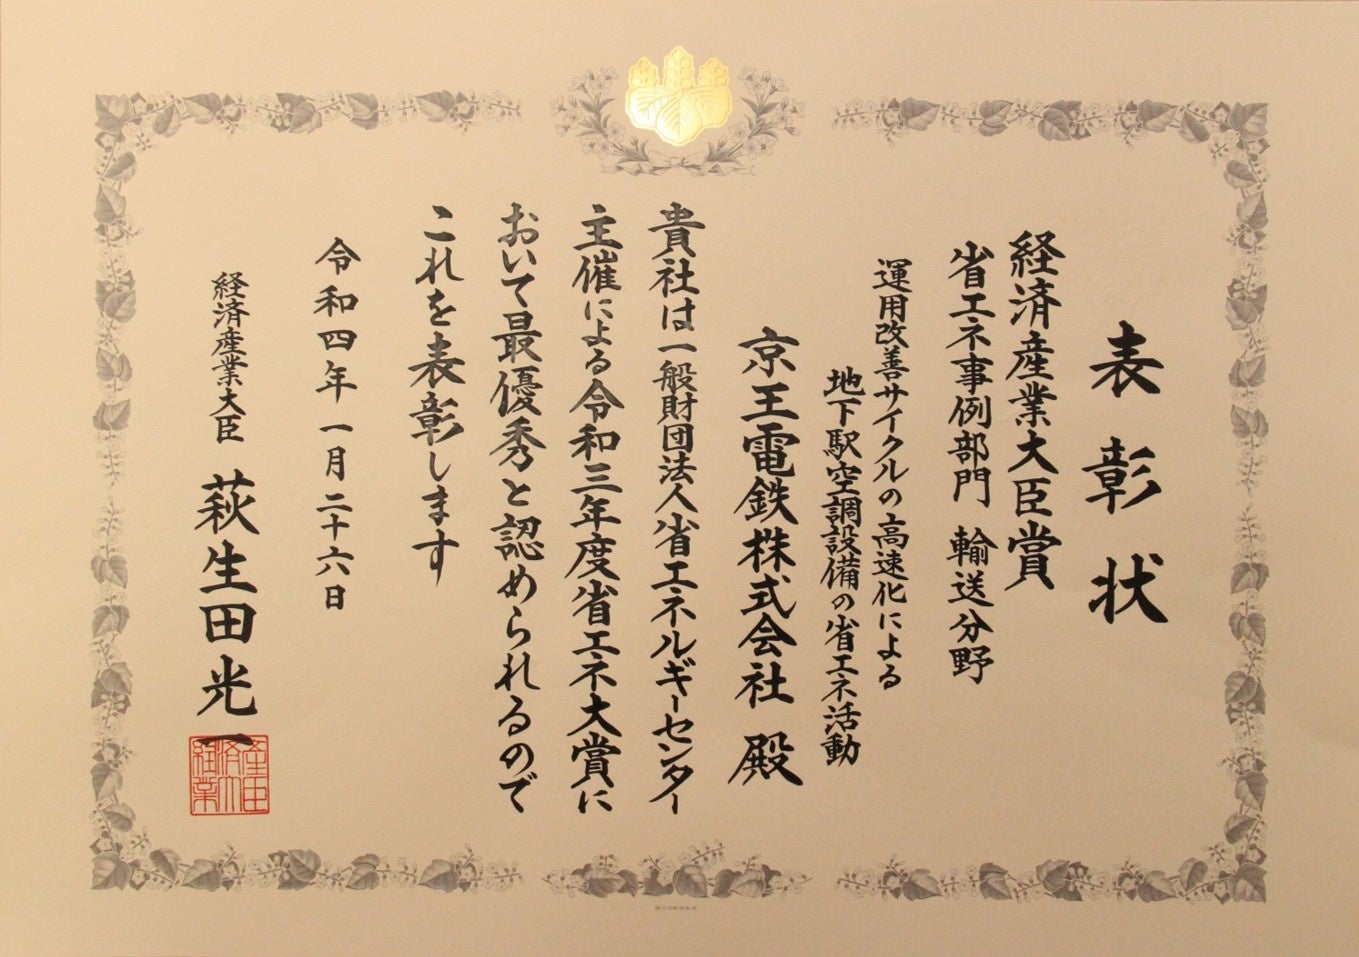 表彰状
経済産業大臣賞
省エネ事例部門 輸送分野
運用改善サイクルの高速化による
地下駅空調設備の省エネ活動
京王電鉄株式会社 殿
貴社は一般財団法人省エネルギーセンター
主催による令和三年度省エネ大賞に
おいて最優秀と認められるので
これを表彰します
令和四年一月二十六日
経済産業大臣 萩生田光一